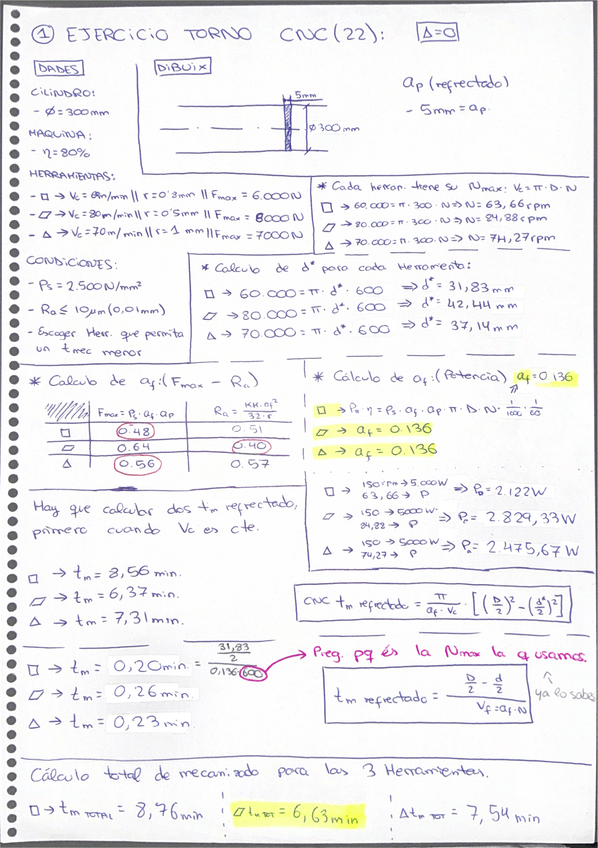 ① EJERCICIO TORNO CNC (22): Δ=0
DADES
CILINDRO:
- Ø = 300mm
MAQUINA:
- η = 80%
DIBUIX
5mm
Ø300mm
ap (refrectado)
- 5mm = ap.
HERRAMIENTAS:
- □ → Vc = 60m/min || r = 0'8mm || Fmax = 6.000N
- ▱ → Vc = 80m/min || r = 0'5mm || Fmax = 8000N
- Δ → Vc = 70m/min || r = 1 mm || Fmax = 7000N
* Cada herram. tiene su Nmax: Vc = π · D · N
□ → 60.000 = π · 300 · N => N = 63,66rpm
▱ → 80.000 = π · 300 · N => N = 84,88rpm
Δ → 70.000 = π · 300 · N => N = 74,27rpm
CONDICIONES:
- Ps = 2.500N/mm²
- Ra ≤ 10μm (0,01mm)
- Escoger Herr. que permita
un tmec menor
* Calculo de d* para cada Herramienta:
□ → 60.000 = π · d* · 600 => d* = 31,83mm
▱ → 80.000 = π · d* · 600 => d* = 42,44mm
Δ → 70.000 = π · d* · 600 => d* = 37,14mm
* Calculo de af: (Fmax - Ra)
Fmax = Ps · af · ap
□ 0.48 0.51
▱ 0.64 0.40
Δ 0.56 0.57
* Cálculo de af: (Potencia) af = 0.136
□ → Pn · η = Ps · af · ap · π · D · N · 1/1000 · 1/60
▱ → af = 0.136
Δ → af = 0.136
□ → 150rpm → 5.000W
63,66 → P => Pn = 2.122W
▱ → 150 → 5000W
84,88 → P => Pn = 2.829,33W
Δ → 150 → 5000W
74,27 → P => Pn = 2.475,67W
Hay que calcular dos tm refrectado,
primero cuando Vc es cte.
□ → tm = 8,56 min.
▱ → tm = 6,37 min.
Δ → tm = 7,31 min.
CNC tm refrectado = π / af · Vc · [(D/2)² - (d*/2)²]
□ → tm = 0,20 min. = 31,83/2 / 0,136·600 → Preg. pq és la Nmax la q usamos.
▱ → tm = 0,26 min.
Δ → tm = 0,23 min.
tm refrectado = D/2 - d/2 / Vf = af · N
ya lo sabes
Cálculo total de mecanizado para las 3 Herramientas.
□ → tm TOTAL = 8,76 min
▱ tm TOT = 6,63 min
Δ tm TOT = 7,54 min